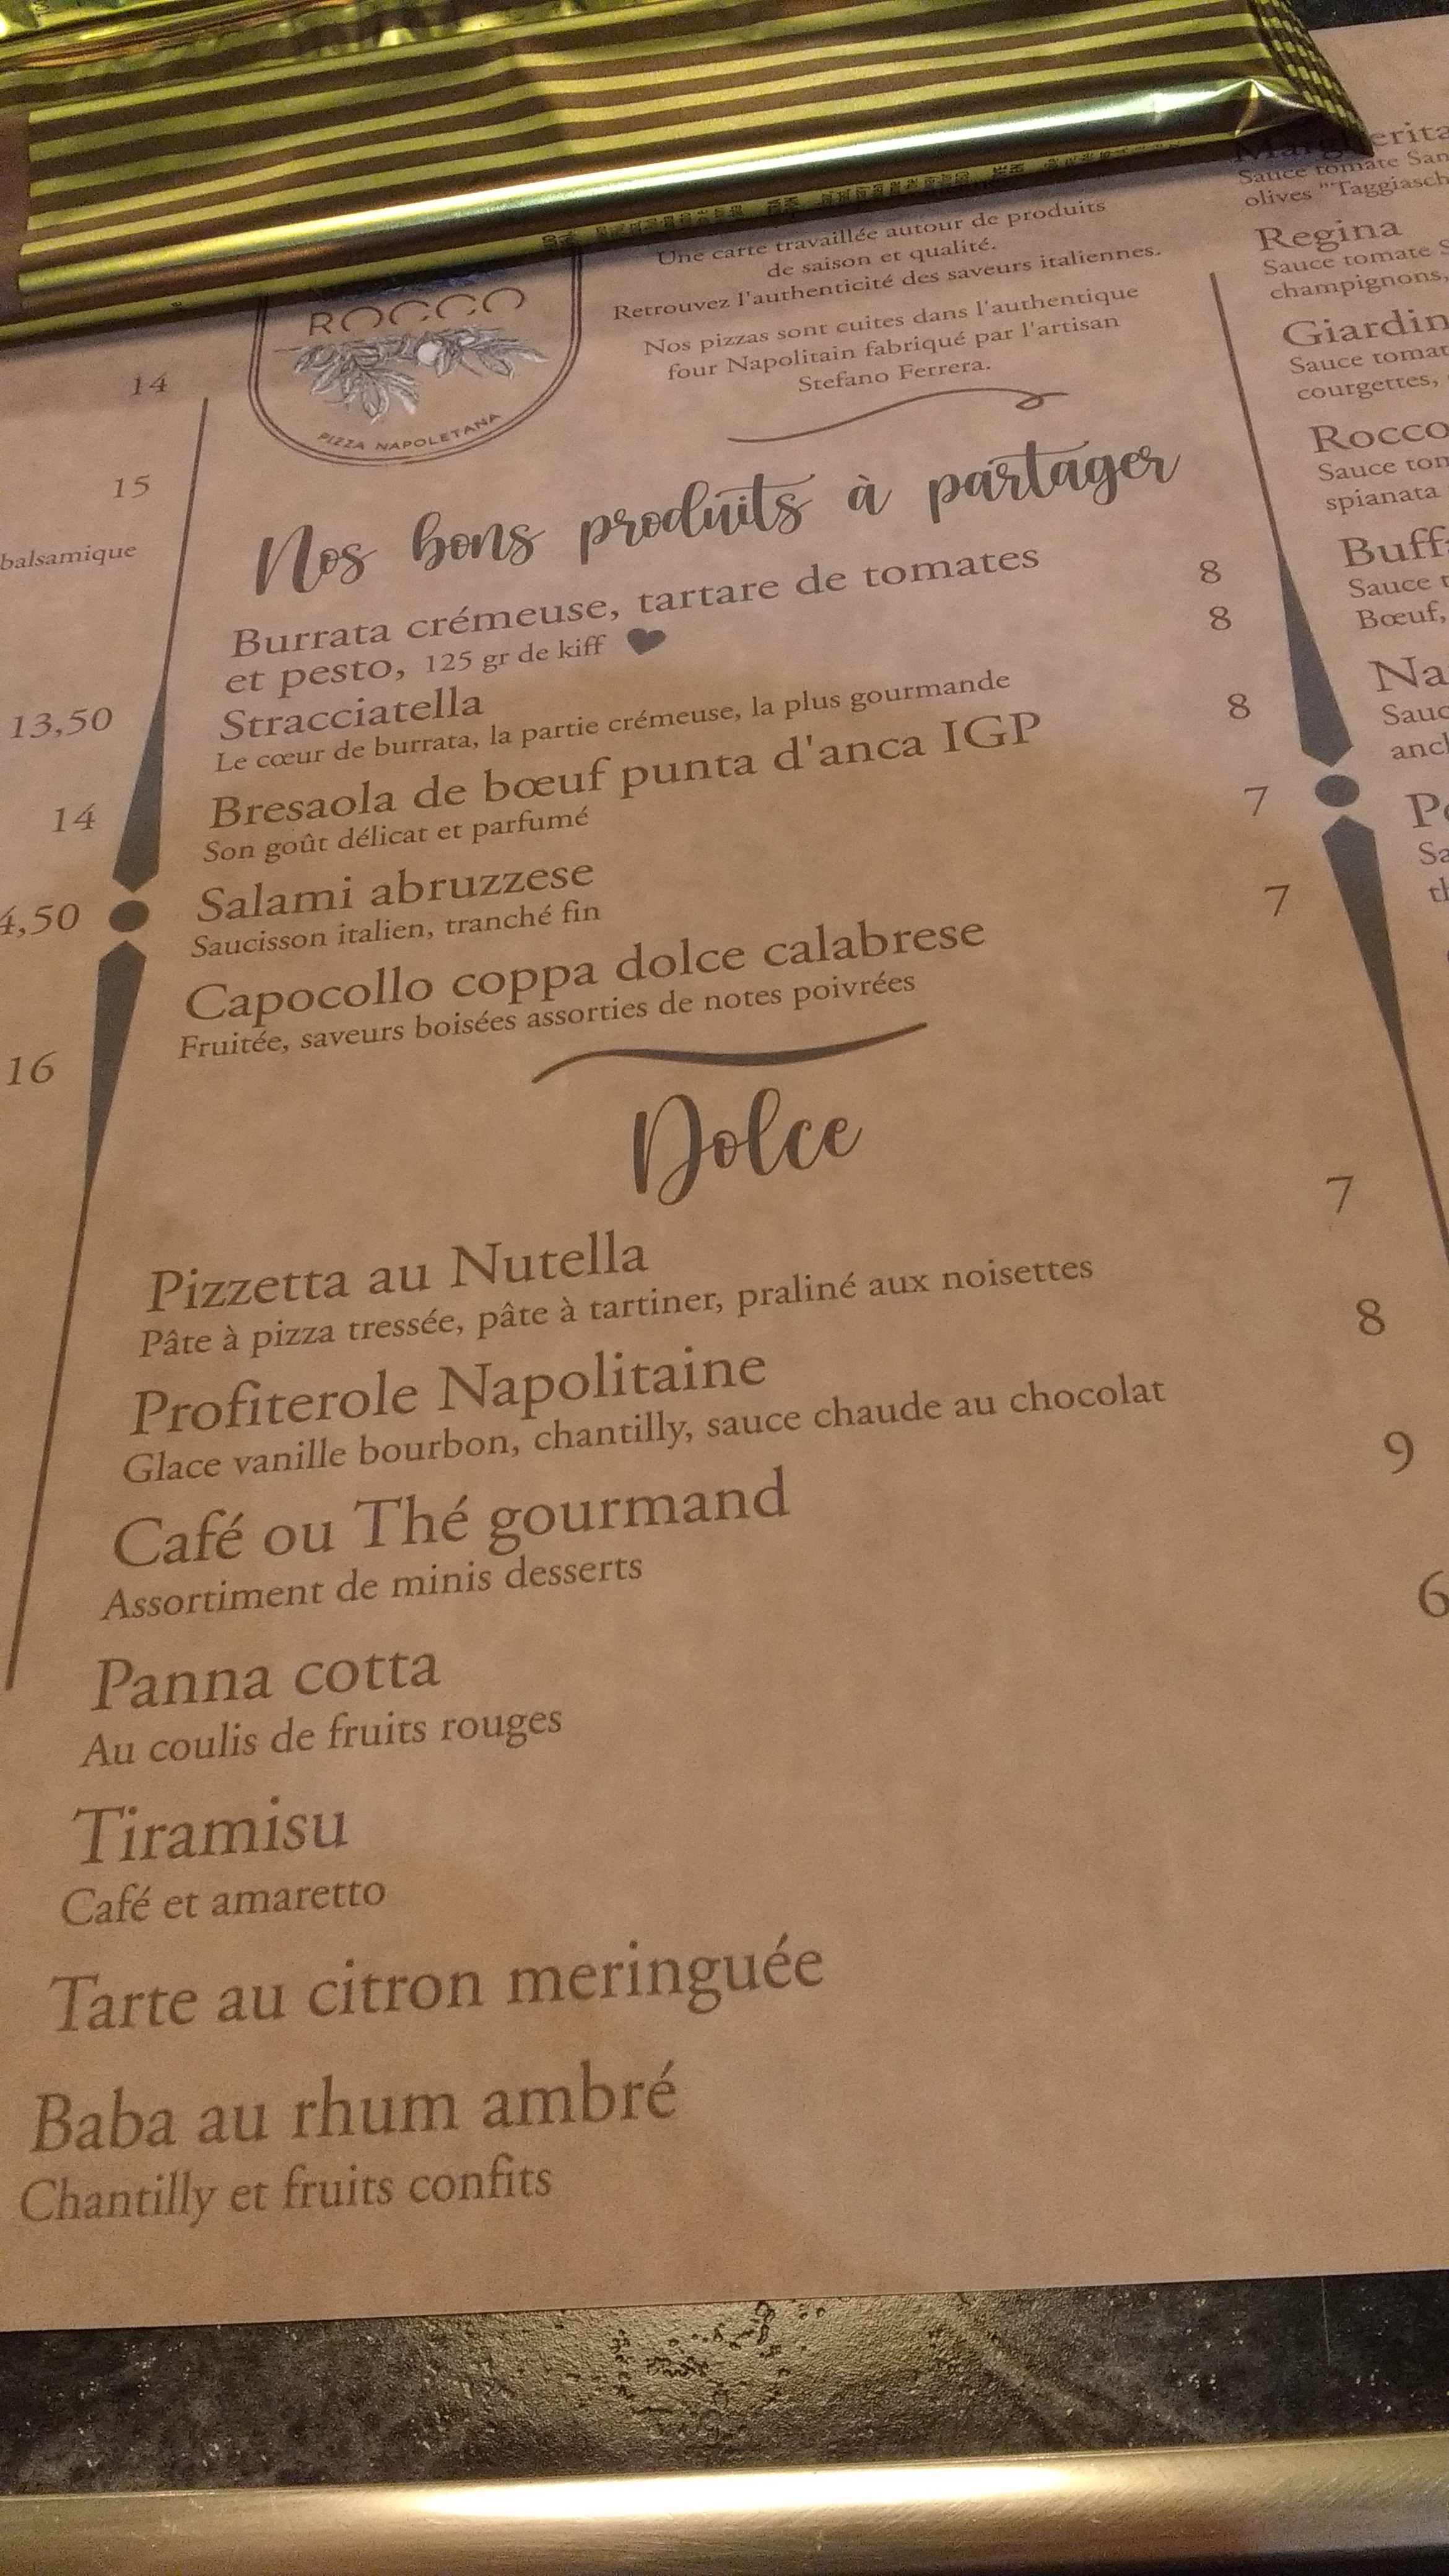 14
15
balsamique
13,50
14
4,50
16
ROCCO
PIZZA NAPOLETANA
Une carte travaillée autour de produits
de saison et qualité.
Retrouvez l'authenticité des saveurs italiennes.
Nos pizzas sont cuites dans l'authentique
four Napolitain fabriqué par l'artisan
Stefano Ferrera.
Nos bons produits à partager
Burrata crémeuse, tartare de tomates 8
et pesto, 125 gr de kiff
Stracciatella 8
Le cœur de burrata, la partie crémeuse, la plus gourmande
Bresaola de bœuf punta d'anca IGP 8
Son goût délicat et parfumé
Salami abruzzese 7
Saucisson italien, tranché fin
Capocollo coppa dolce calabrese 7
Fruitée, saveurs boisées assorties de notes poivrées
Dolce
Pizzetta au Nutella 7
Pâte à pizza tressée, pâte à tartiner, praliné aux noisettes
Profiterole Napolitaine 8
Glace vanille bourbon, chantilly, sauce chaude au chocolat
Café ou Thé gourmand 9
Assortiment de minis desserts
Panna cotta 6
Au coulis de fruits rouges
Tiramisu
Café et amaretto
Tarte au citron meringuée
Baba au rhum ambré
Chantilly et fruits confits
Margherita
Sauce tomate San
olives "Taggiasch
Regina
Sauce tomate S
champignons,
Giardin
Sauce tomat
courgettes,
Rocco
Sauce tom
spianata
Buff
Sauce t
Bœuf,
Na
Sauc
anch
Po
Sa
th